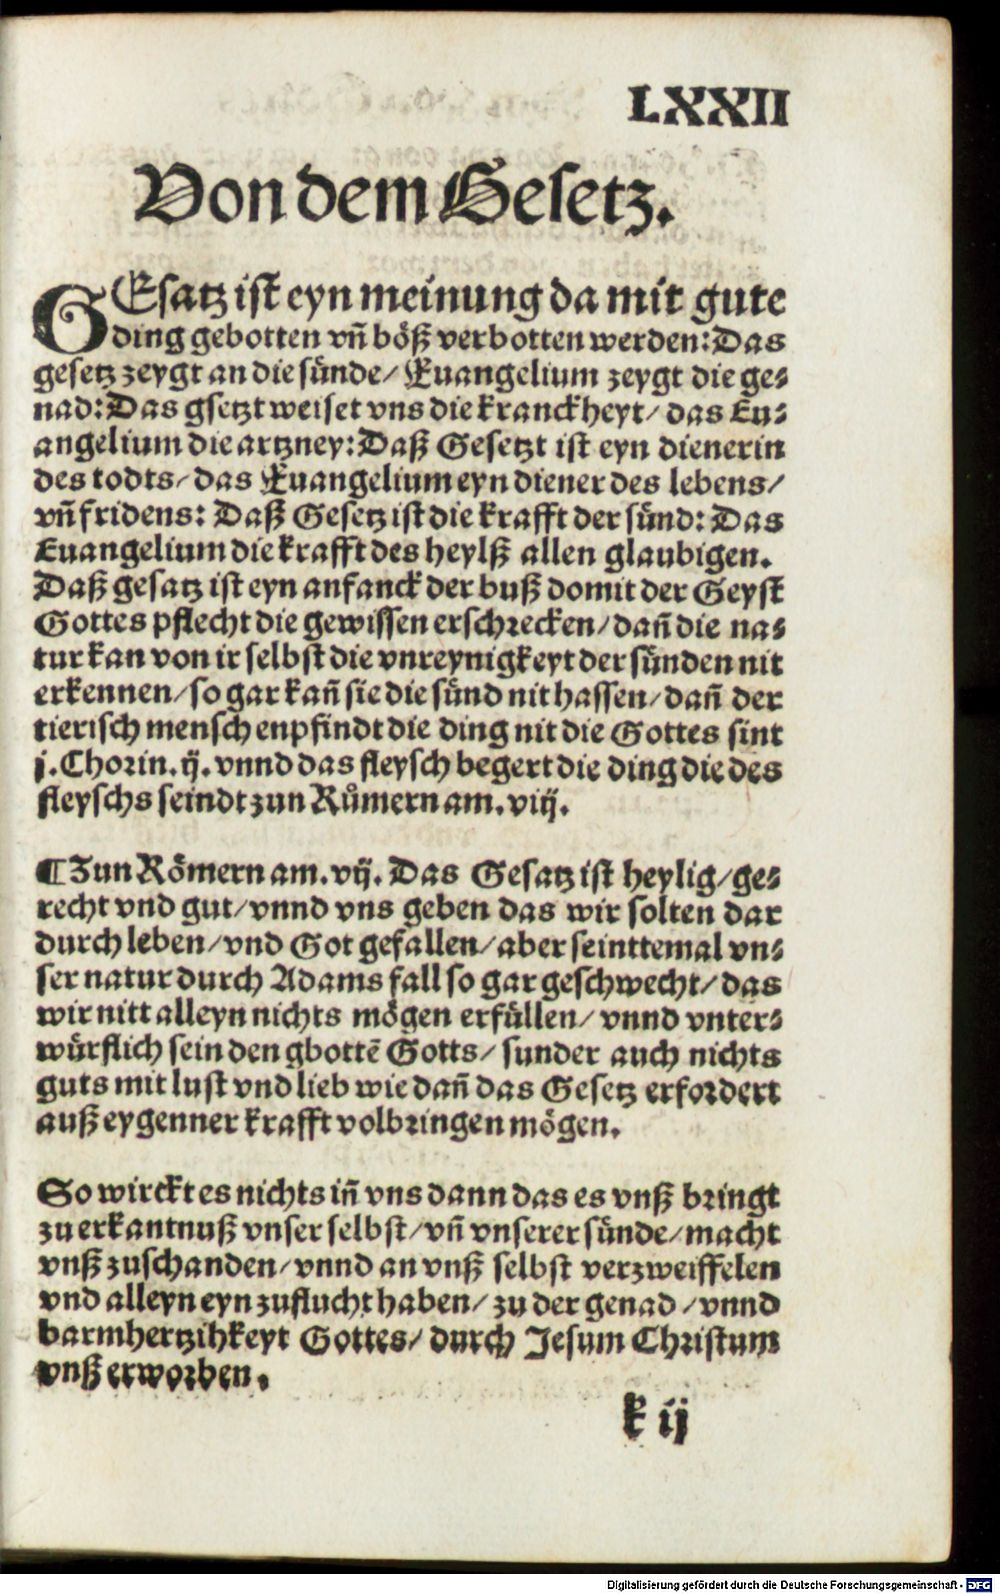 LXXII
Von dem Gesetz.
GEsatz ist eyn meinung da mit gute
ding gebotten vñ böß verbotten werden: Das
gesetz zeygt an die sünde/ Euangelium zeygt die ge⸗
nad: Das gsetzt weiset vns die kranckheyt/ das Eu⸗
angelium die artzney: Daß Gesetzt ist eyn dienerin
des todts/ das Euangelium eyn diener des lebens/
vñ fridens: Daß Gesetz ist die krafft der sünd: Das
Euangelium die krafft des heylß allen glaubigen.
Daß gesatz ist eyn anfanck der buß domit der Geyst
Gottes pflecht die gewissen erschrecken/ dañ die na⸗
tur kan von ir selbst die vnreynigkeyt der sünden nit
erkennen/ so gar kañ sie die sünd nit hassen/ dañ der
tierisch mensch enpfindt die ding nit die Gottes sint
j. Chorin. ij. vnnd das fleysch begert die ding die des
fleyschs seindt zun Růmern am. viij.
¶ Zun Römern am. vij. Das Gesatz ist heylig/ ge⸗
recht vnd gut/ vnnd vns geben das wir solten dar
durch leben/ vnd Got gefallen/ aber seinttemal vn⸗
ser natur durch Adams fall so gar geschwecht/ das
wir nitt alleyn nichts mögen erfüllen/ vnnd vnter⸗
würflich sein den gbottē Gotts/ sunder auch nichts
guts mit lust vnd lieb wie dañ das Gesetz erfordert
auß eygenner krafft volbringen mögen.
So wirckt es nichts iñ vns dann das es vnß bringt
zu erkantnuß vnser selbst/ vñ vnserer sünde/ macht
vnß zuschanden/ vnnd an vnß selbst verzweiffelen
vnd alleyn eyn zuflucht haben/ zu der genad/ vnnd
barmhertzihkeyt Gottes/ durch Jesum Christum
vnß erworben.
k ij
Digitalisierung gefördert durch die Deutsche Forschungsgemeinschaft - DFG